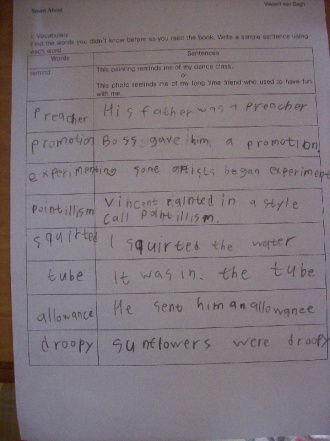 Vincent van Gogh
I. Vocabulary
Find the words you didn't know before so you read the book. Write a sample sentence using
each word.
Words Sentences
remind This painting reminds me of my dance class.
or
This photo reminds me of my long time friend who used to have fun
with me.
Preacher His father was a Preacher
promotion Boss gave him a promotion.
experimenting some artists began experiment
pointillism Vincent painted in a style
call pointillism.
squirted I squirted the water
tube It was in. the tube
allowance He sent him an allowance
droopy sunflowers were droopy